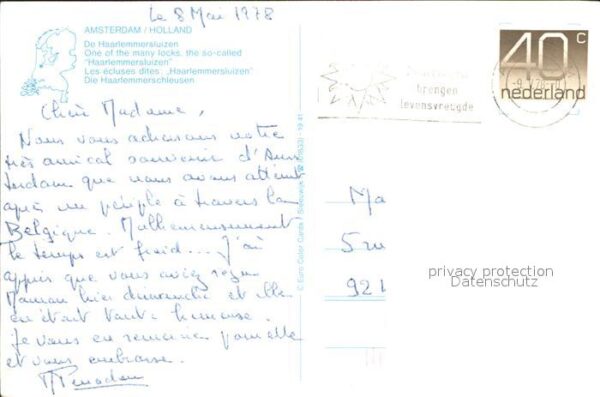 Le 8 Mai 1978
AMSTERDAM / HOLLAND
De Haarlemmersluizen
One of the many locks, the so-called
"Haarlemmersluizen"
Les écluses dites: „Haarlemmersluizen"
Die Haarlemmerschleusen
Chère Madame,
Nous vous adressons notre
très amical souvenir d'Ams
terdam que nous avons atteint
après un périple à travers la
Belgique. Malheureusement
le temps est froid... J'ai
appris que vous aviez reçu
Maman hier dimanche et elle
en était toute heureuse.
Je vous en remercie pour elle
et vous embrasse.
© Euro Color Cards
40 c
nederland
brengen
levensvreugde
Ma
5 rue
921
privacy protection
Datenschutz